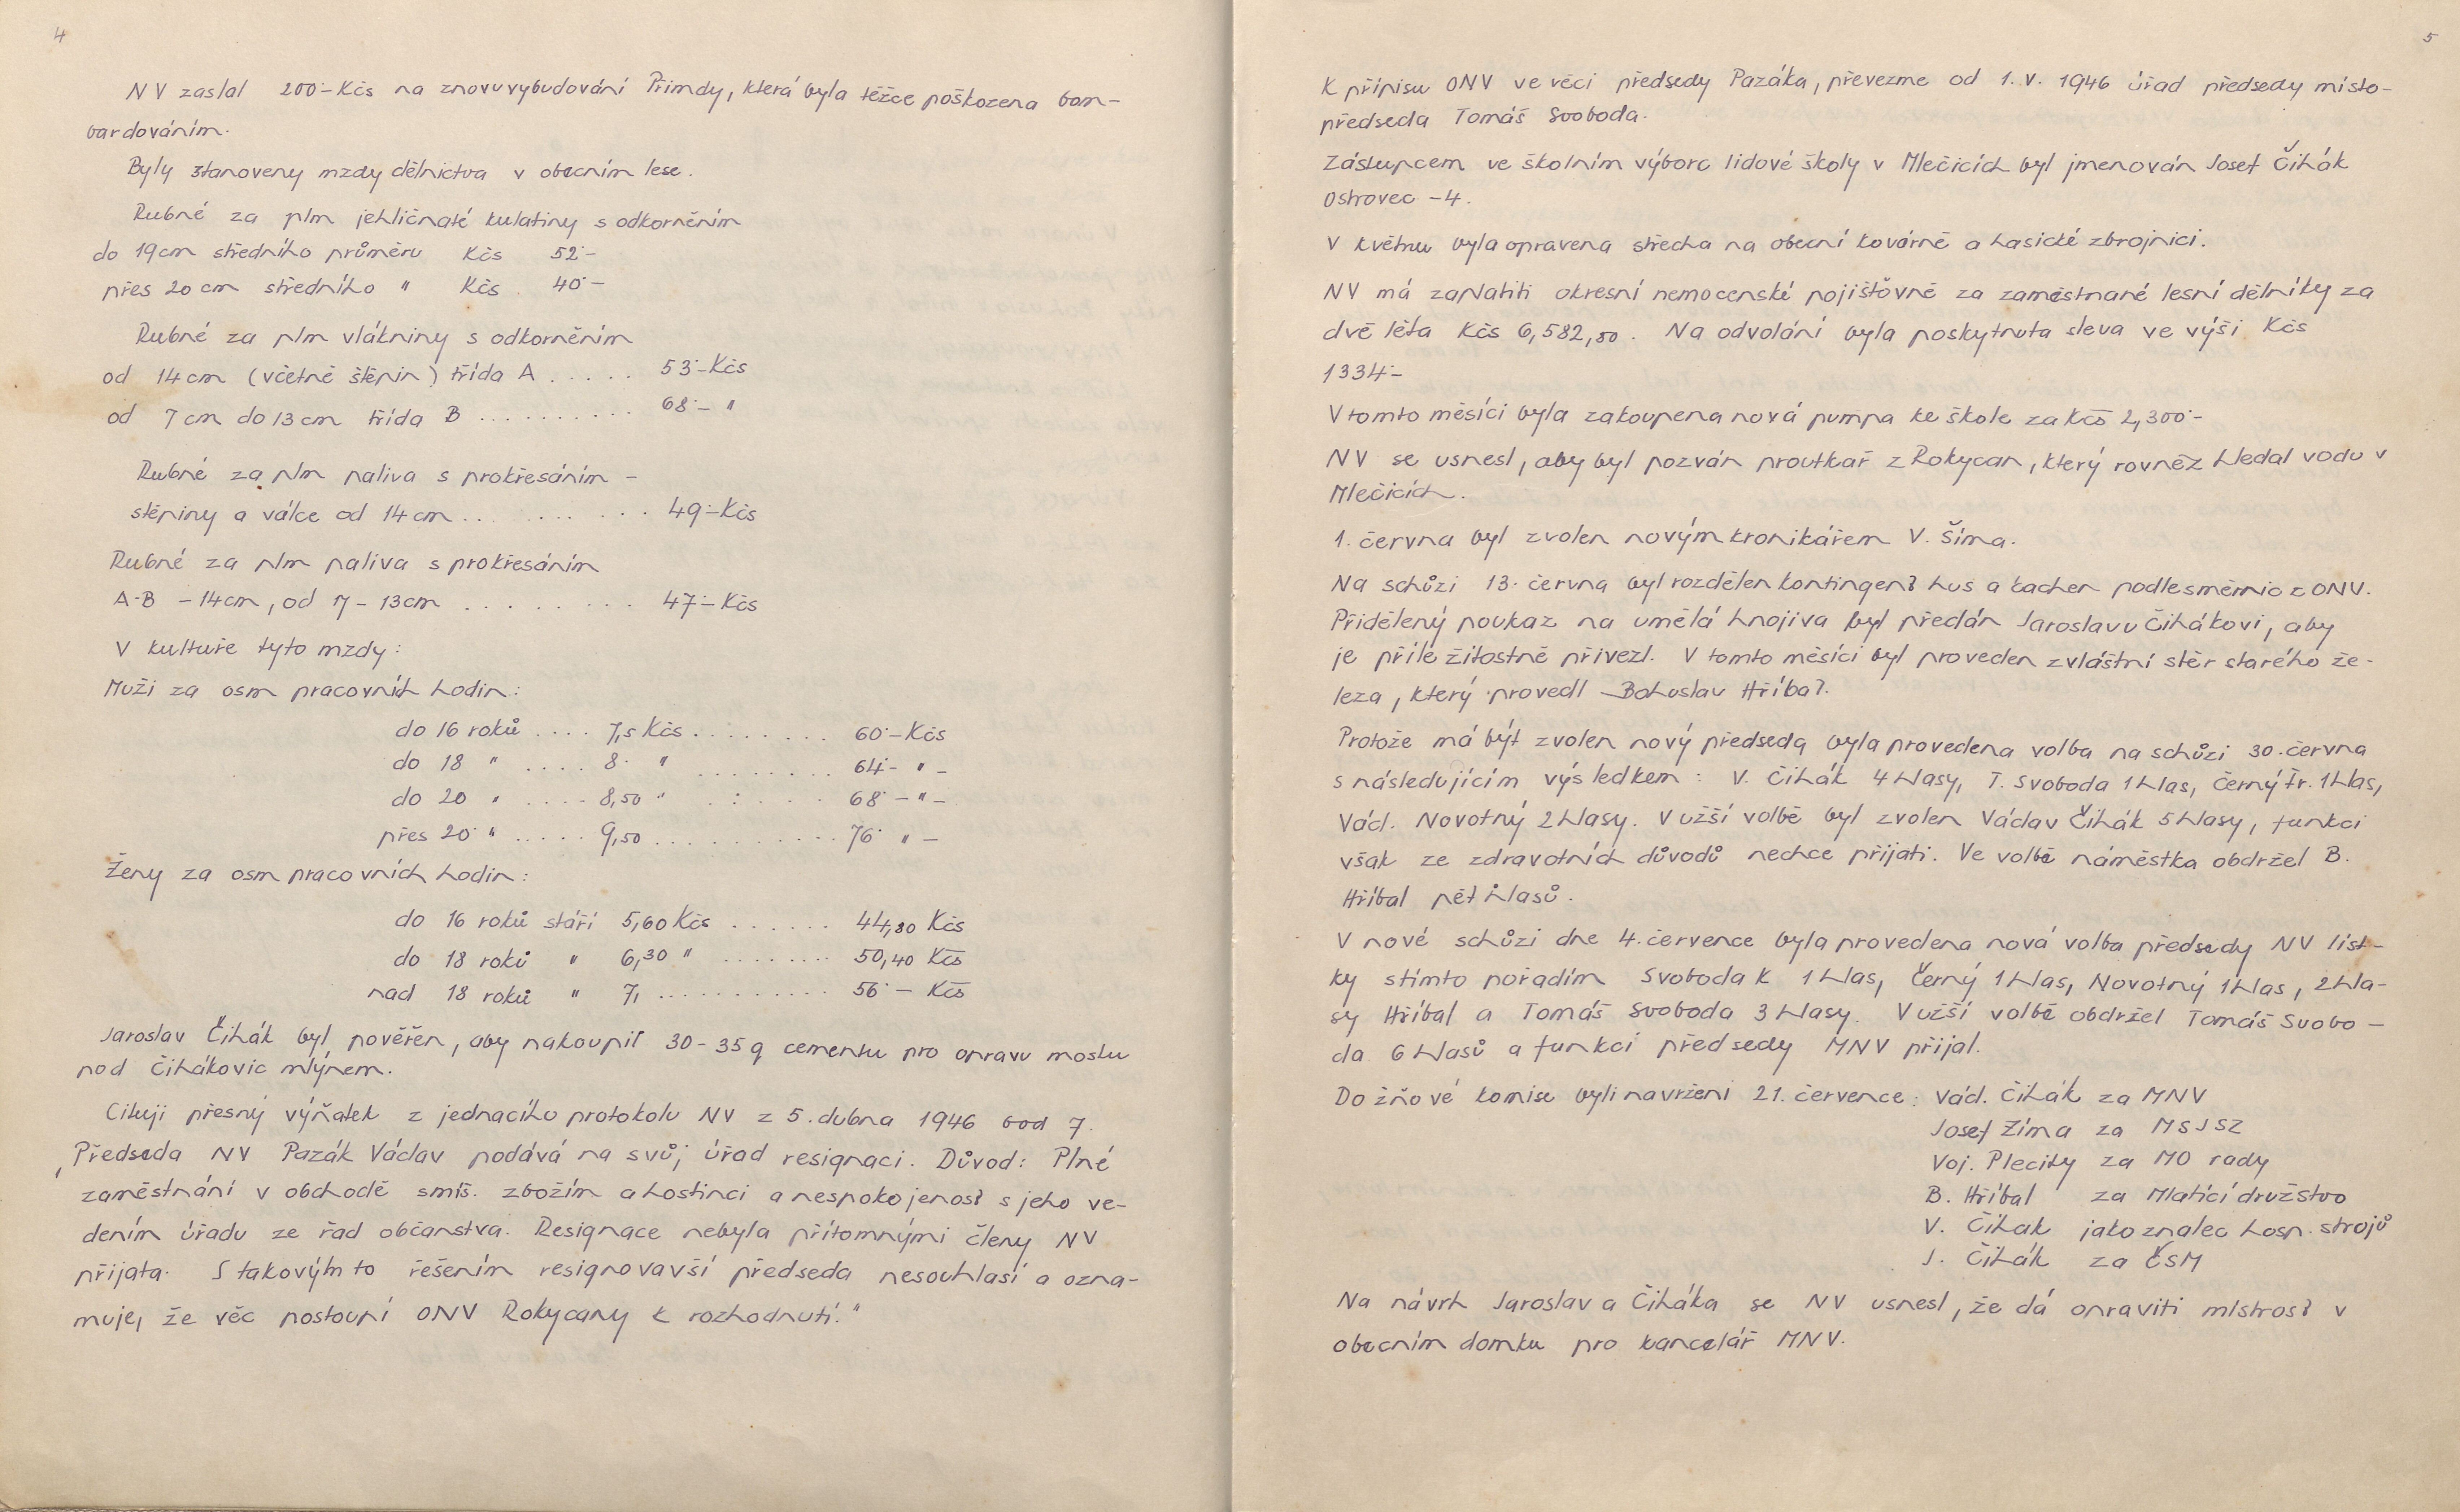 4
NV zaslal 200·- Kčs na znovuvybudování Přimdy, která byla těžce poškozena bom-
bardováním.
Byly stanoveny mzdy dělnictva v obecním lese.
Rubné za plm jehličnaté kulatiny s odkorněním
do 19 cm středního průměru Kčs 52·-
přes 20 cm středního " Kčs 40·-
Rubné za plm vlákniny s odkorněním
od 14 cm (včetně štěpin) třída A ..... 53·- Kčs
od 7 cm do 13 cm třída B .......... 68·- "
Rubné za plm paliva s prokřesáním -
štěpiny a válce od 14 cm .......... 49·- Kčs
Rubné za plm paliva s prokřesáním
A-B - 14 cm, od 7 - 13 cm ......... 47·- Kčs
V kultuře tyto mzdy:
Muži za osm pracovních hodin:
do 16 roků .... 7,5 Kčs ........ 60·- Kčs
do 18 " .... 8· " ........ 64·- " -
do 20 " .... 8,50 " ........ 68·- " -
přes 20· " ..... 9,50 ........... 76· " -
Ženy za osm pracovních hodin:
do 16 roků stáří 5,60 Kčs ...... 44,80 Kčs
do 18 roků " 6,30 " ........ 50,40 Kčs
nad 18 roků " 7, ............ 56·- Kčs
Jaroslav Čihák byl pověřen, aby nakoupil 30-35 q cementu pro opravu mostu
pod Čihákovic mlýnem.
Cituji přesný výňatek z jednacího protokolu NV z 5. dubna 1946 bod 7.
"Předseda NV Pazák Václav podává na svůj úřad resignaci. Důvod: Plné
zaměstnání v obchodě smíš. zbožím a hostinci a nespokojenost s jeho ve-
dením úřadu ze řad občanstva. Resignace nebyla přítomnými členy NV
přijata. S takovýmto řešením resignovavší předseda nesouhlasí a ozna-
muje, že věc postoupí ONV Rokycany k rozhodnutí."
5
K přípisu ONV ve věci předsedy Pazáka, převezme od 1. V. 1946 úřad předsedy místo-
předseda Tomáš Svoboda.
Zástupcem ve školním výboru lidové školy v Mlečicích byl jmenován Josef Čihák
Ostrovec - 4.
V květnu byla opravena střecha na obecní kovárně a hasické zbrojnici.
NV má zaplatiti okresní nemocenské pojišťovně za zaměstnané lesní dělníky za
dvě léta Kčs 6,582,50. Na odvolání byla poskytnuta sleva ve výši Kčs
1334·-
V tomto měsíci byla zakoupena nová pumpa ke škole za Kčs 2,300·-
NV se usnesl, aby byl pozván proutkař z Rokycan, který rovněž hledal vodu v
Mlečicích.
1. června byl zvolen novým kronikářem V. Šíma.
Na schůzi 13. června byl rozdělen kontingent hus a kachen podle směrnic z ONV.
Přidělený poukaz na umělá hnojiva byl předán Jaroslavu Čihákovi, aby
je příležitostně přivezl. V tomto měsíci byl proveden zvláštní sběr starého že-
leza, který provedl Bohuslav Hříbal.
Protože má být zvolen nový předseda byla provedena volba na schůzi 30. června
s následujícím výsledkem: V. Čihák 4 hlasy, T. Svoboda 1 hlas, Černý Fr. 1 hlas,
Václ. Novotný 2 hlasy. V užší volbě byl zvolen Václav Čihák 5 hlasy, funkci
však ze zdravotních důvodů nechce přijati. Ve volbě náměstka obdržel B.
Hříbal pět hlasů.
V nové schůzi dne 4. července byla provedena nová volba předsedy NV líst-
ky s tímto pořadím Svoboda K 1 hlas, Černý 1 hlas, Novotný 1 hlas, 2 hla-
sy Hříbal a Tomáš Svoboda 3 hlasy. V užší volbě obdržel Tomáš Svobo-
da 6 hlasů a funkci předsedy MNV přijal.
Do žňové komise byli navrženi 21. července: Václ. Čihák za MNV
Josef Zíma za MSJSZ
Voj. Plecitý za MO rady
B. Hříbal za Mlatící družstvo
V. Čihák jako znalec hosp. strojů
J. Čihák za ČSM
Na návrh Jaroslava Čiháka se NV usnesl, že dá opraviti místnost v
obecním domku pro kancelář MNV.